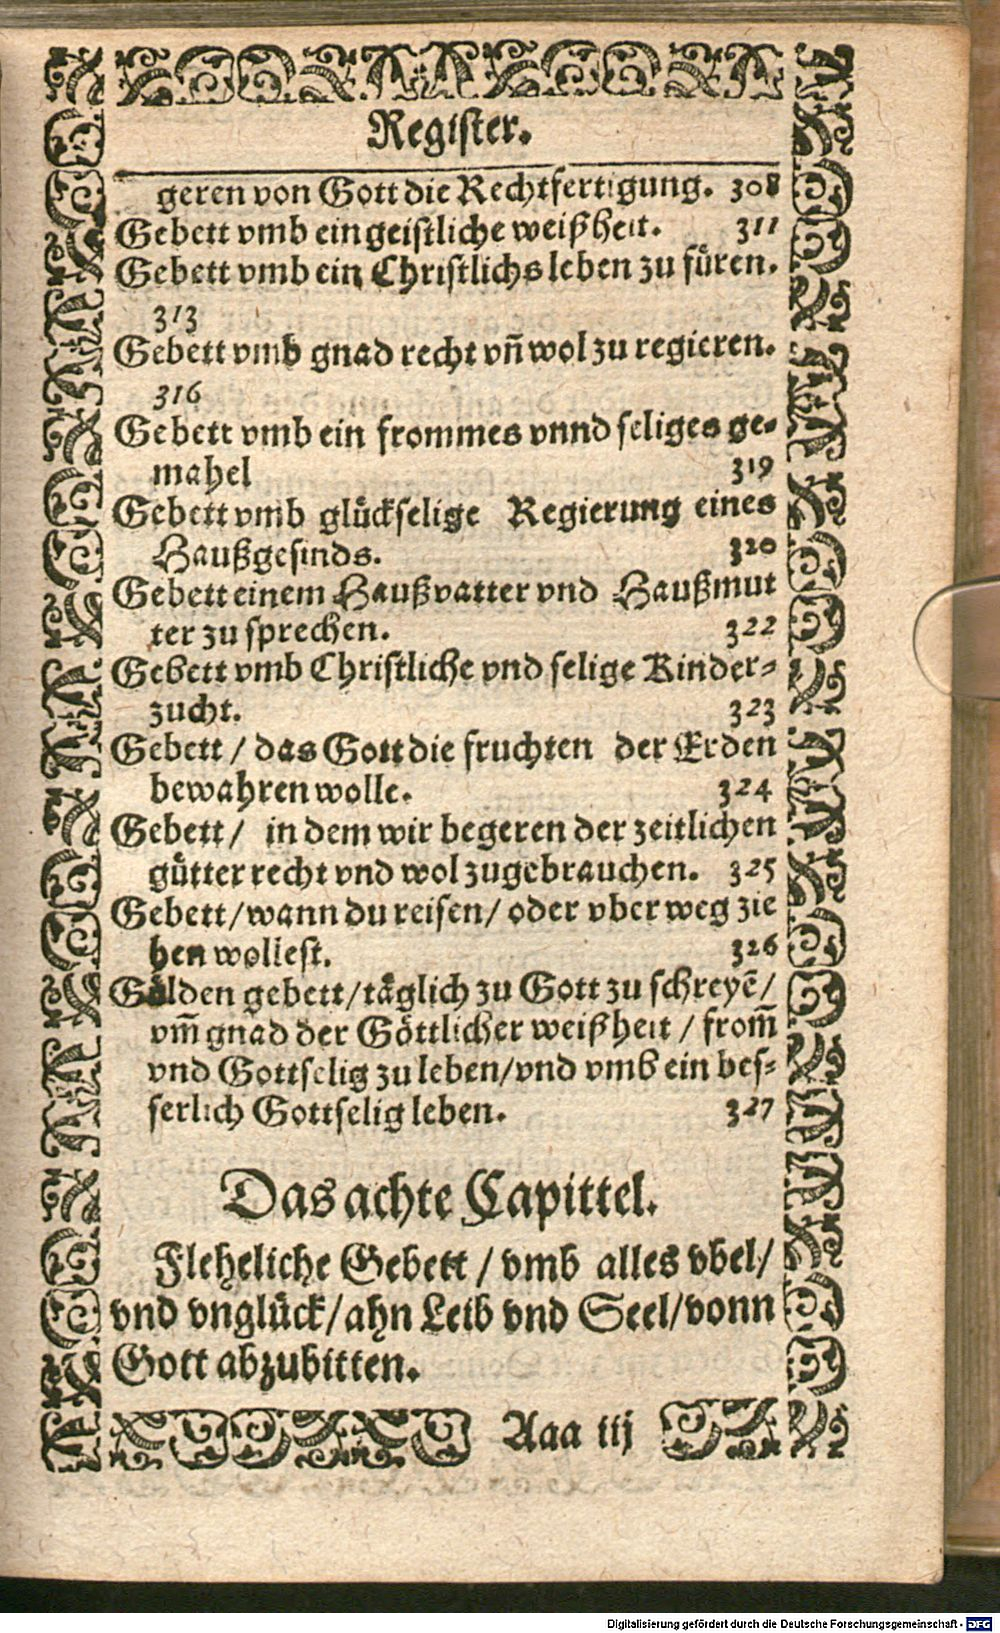 Register.
geren von Gott die Rechtfertigung. 308
Gebett vmb ein geistliche weißheit. 311
Gebett vmb ein Christlichs leben zu füren.
313
Gebett vmb gnad recht vñ wol zu regieren.
316
Gebett vmb ein frommes vnnd seliges ge-
mahel 319
Gebett vmb glückselige Regierung eines
Haußgesinds. 320
Gebett einem Haußvatter vnd Haußmut
ter zu sprechen. 322
Gebett vmb Christliche vnd selige Kinder-
zucht. 323
Gebett / das Gott die fruchten der Erden
bewahren wolle. 324
Gebett / in dem wir begeren der zeitlichen
gütter recht vnd wol zugebrauchen. 325
Gebett/wann du reisen/ oder vber weg zie
hen wollest. 326
Gülden gebett/täglich zu Gott zu schreyẽ/
vm̃ gnad der Göttlicher weißheit / from̃
vnd Gottselig zu leben/vnd vmb ein bes-
serlich Gottselig leben. 327
Das achte Capittel.
Fleheliche Gebett / vmb alles vbel/
vnd vnglück/ahn Leib vnd Seel/vonn
Gott abzubitten.
Aaa iij
Digitalisierung gefördert durch die Deutsche Forschungsgemeinschaft - DFG